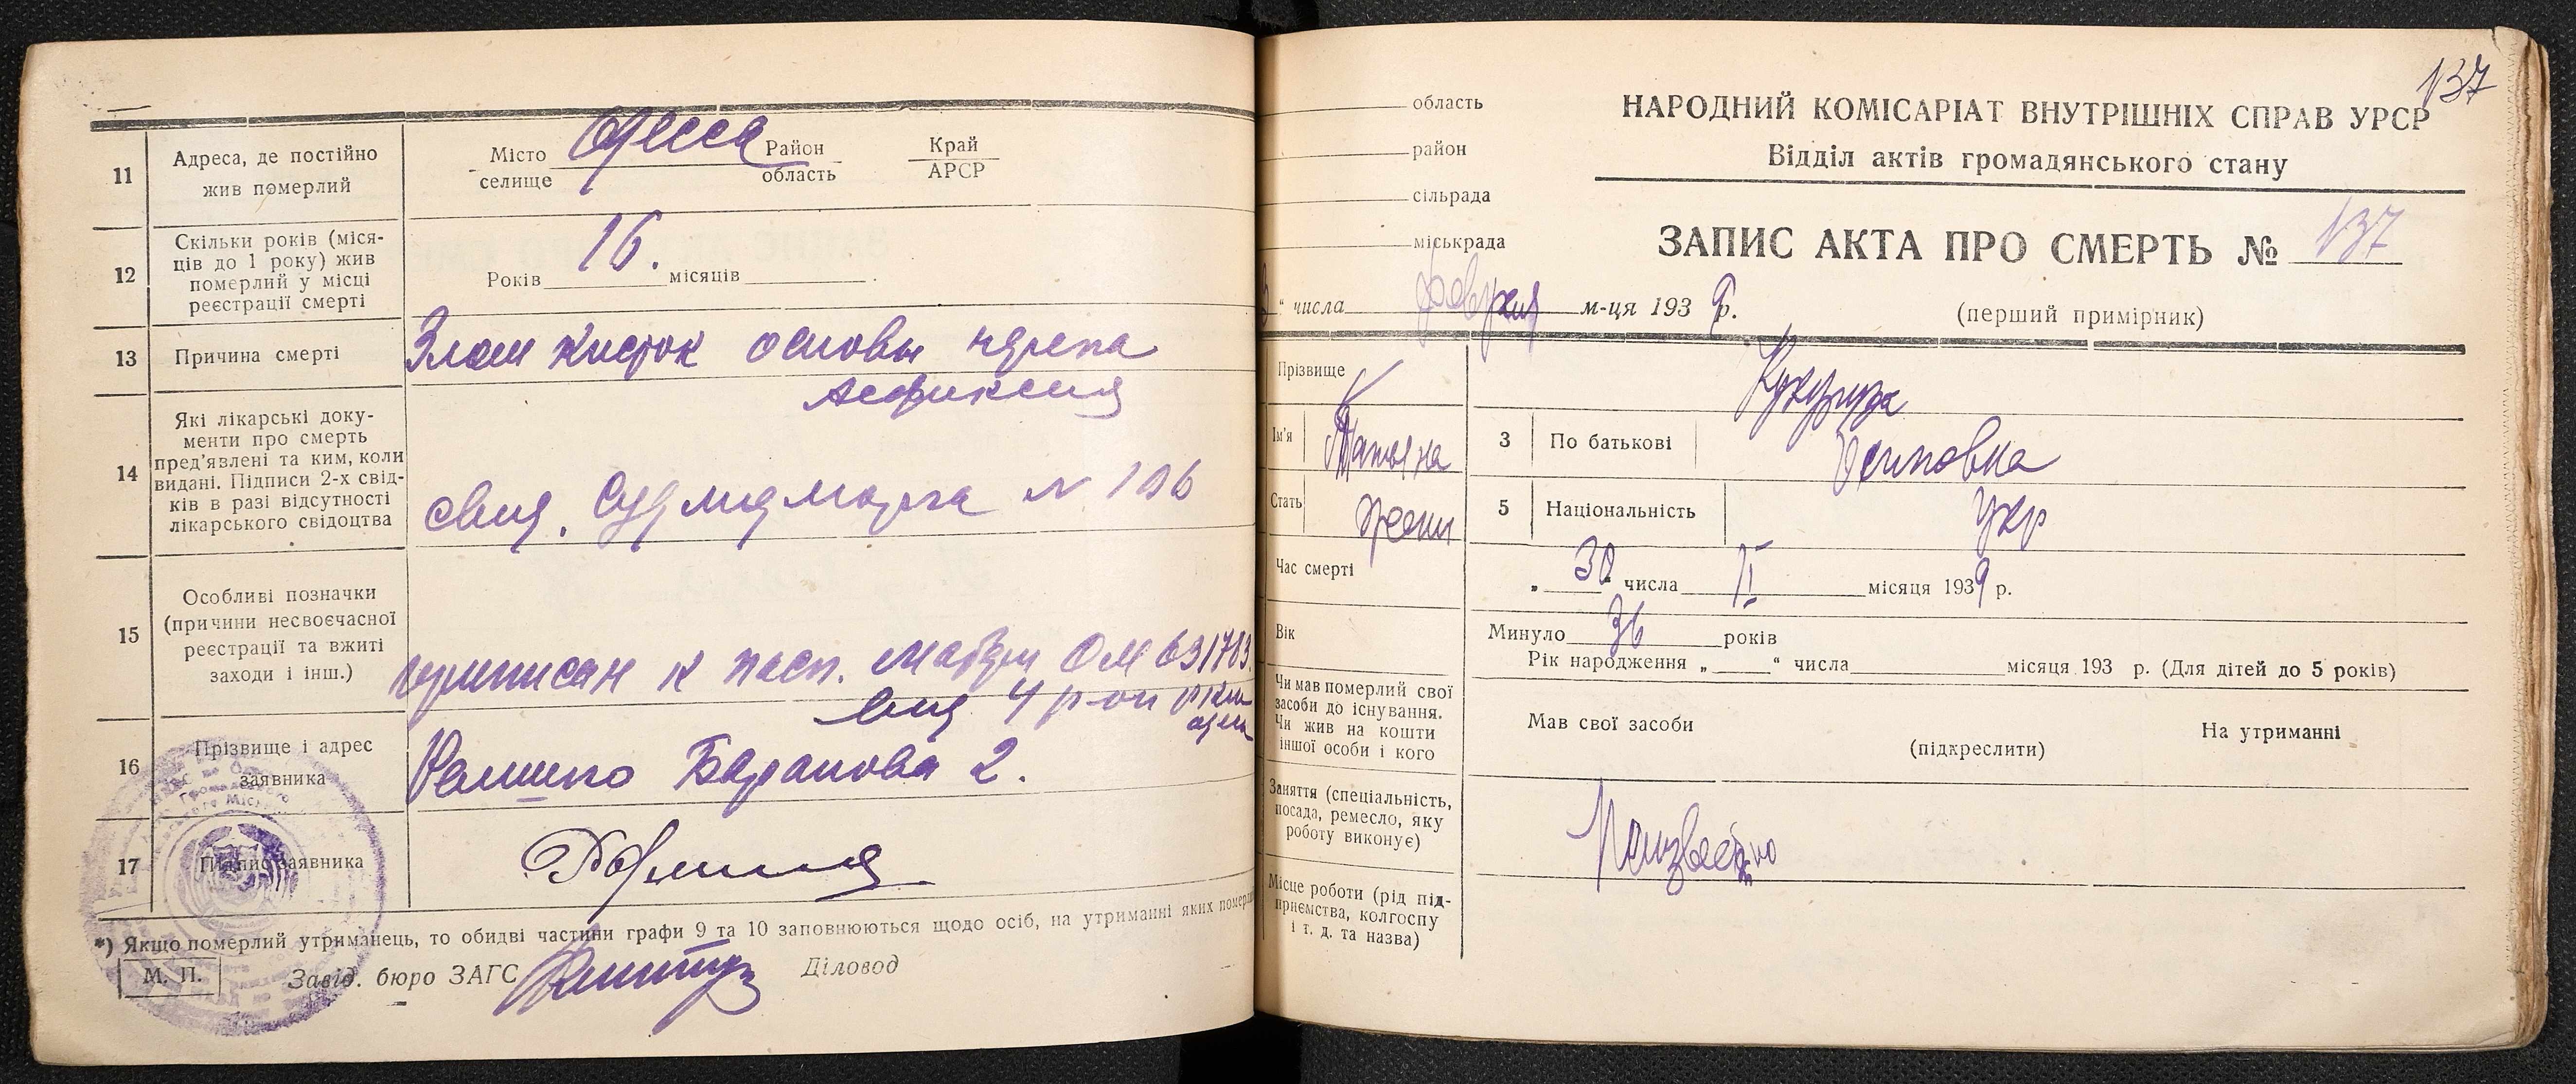 11
Адреса, де постійно
жив померлий
Місто Одесса Район Край
селище область АРСР
12
Скільки років (міся-
ців до 1 року) жив
померлий у місці
реєстрації смерті
Років 16. місяців
13
Причина смерті
Злам кисток основы черепа
Асфиксия
14
Які лікарські доку-
менти про смерть
пред'явлені та ким, коли
видані. Підписи 2-х свід-
ків в разі відсутності
лікарського свідоцтва
морга № 106
15
Особливі позначки
(причини несвоєчасної
реєстрації та вжиті
заходи і інш.)
к пасп. ОМ 631783
4 р-ом
16
Прізвище і адрес
заявника
Баранова 2.
17
Підпис заявника
*) Якщо померлий утриманець, то обидві частини графи 9 та 10 заповнюються щодо осіб, на утриманні яких
М. П.
Завід. бюро ЗАГС
Діловод
137
область
район
сільрада
міськрада
НАРОДНИЙ КОМІСАРІАТ ВНУТРІШНІХ СПРАВ УРСР
Відділ актів громадянського стану
ЗАПИС АКТА ПРО СМЕРТЬ № 137
" числа февраля м-ця 1939 р.
(перший примірник)
Прізвище
Ім'я Татьяна
3 По батькові Осиповна
Стать женщ
5 Національність укр
Час смерті
„ 30 " числа II місяця 1939 р.
Вік
Минуло 36 років
Рік народження „ " числа місяця 193 р. (Для дітей до 5 років)
Чи мав померлий свої
засоби до існування.
Чи жив на кошти
іншої особи і кого
Мав свої засоби
(підкреслити)
На утриманні
Заняття (спеціальність,
посада, ремесло, яку
роботу виконує)
Неизвестно
Місце роботи (рід під-
приємства, колгоспу
і т. д. та назва)